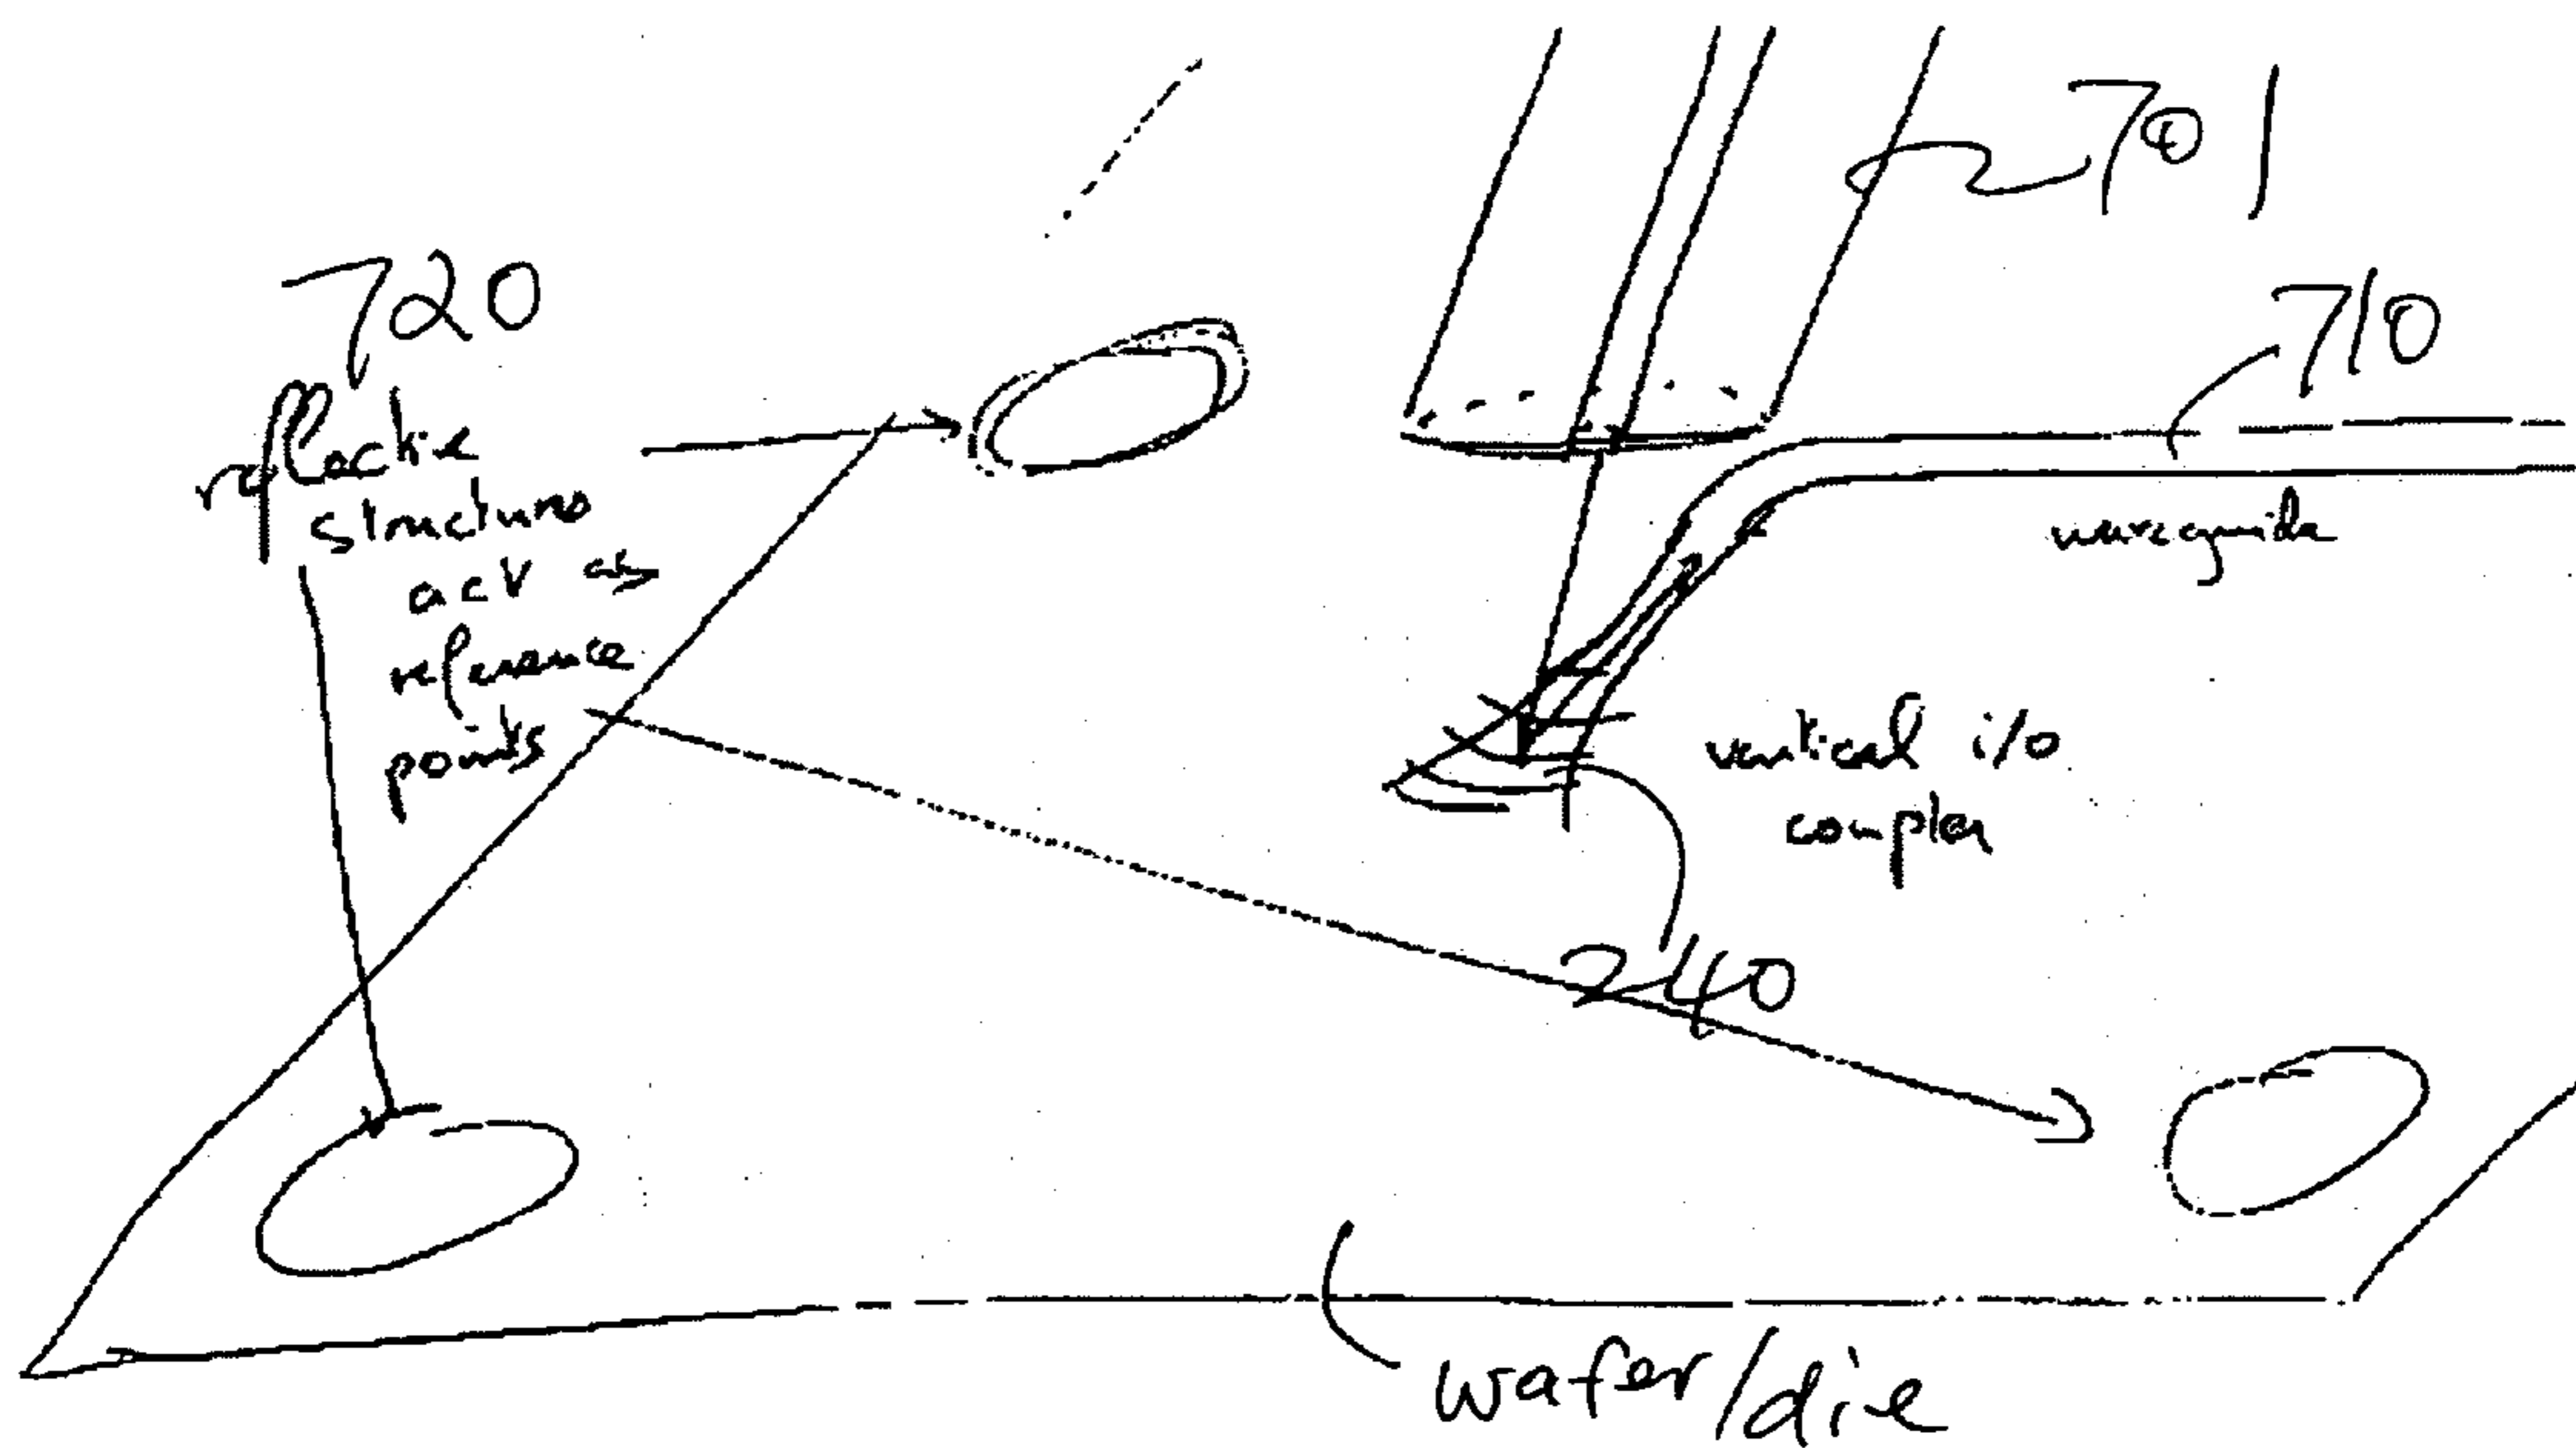 701
720
710
reflective
structures
act as
reference
points
waveguide
vertical i/o
coupler
240
wafer/die